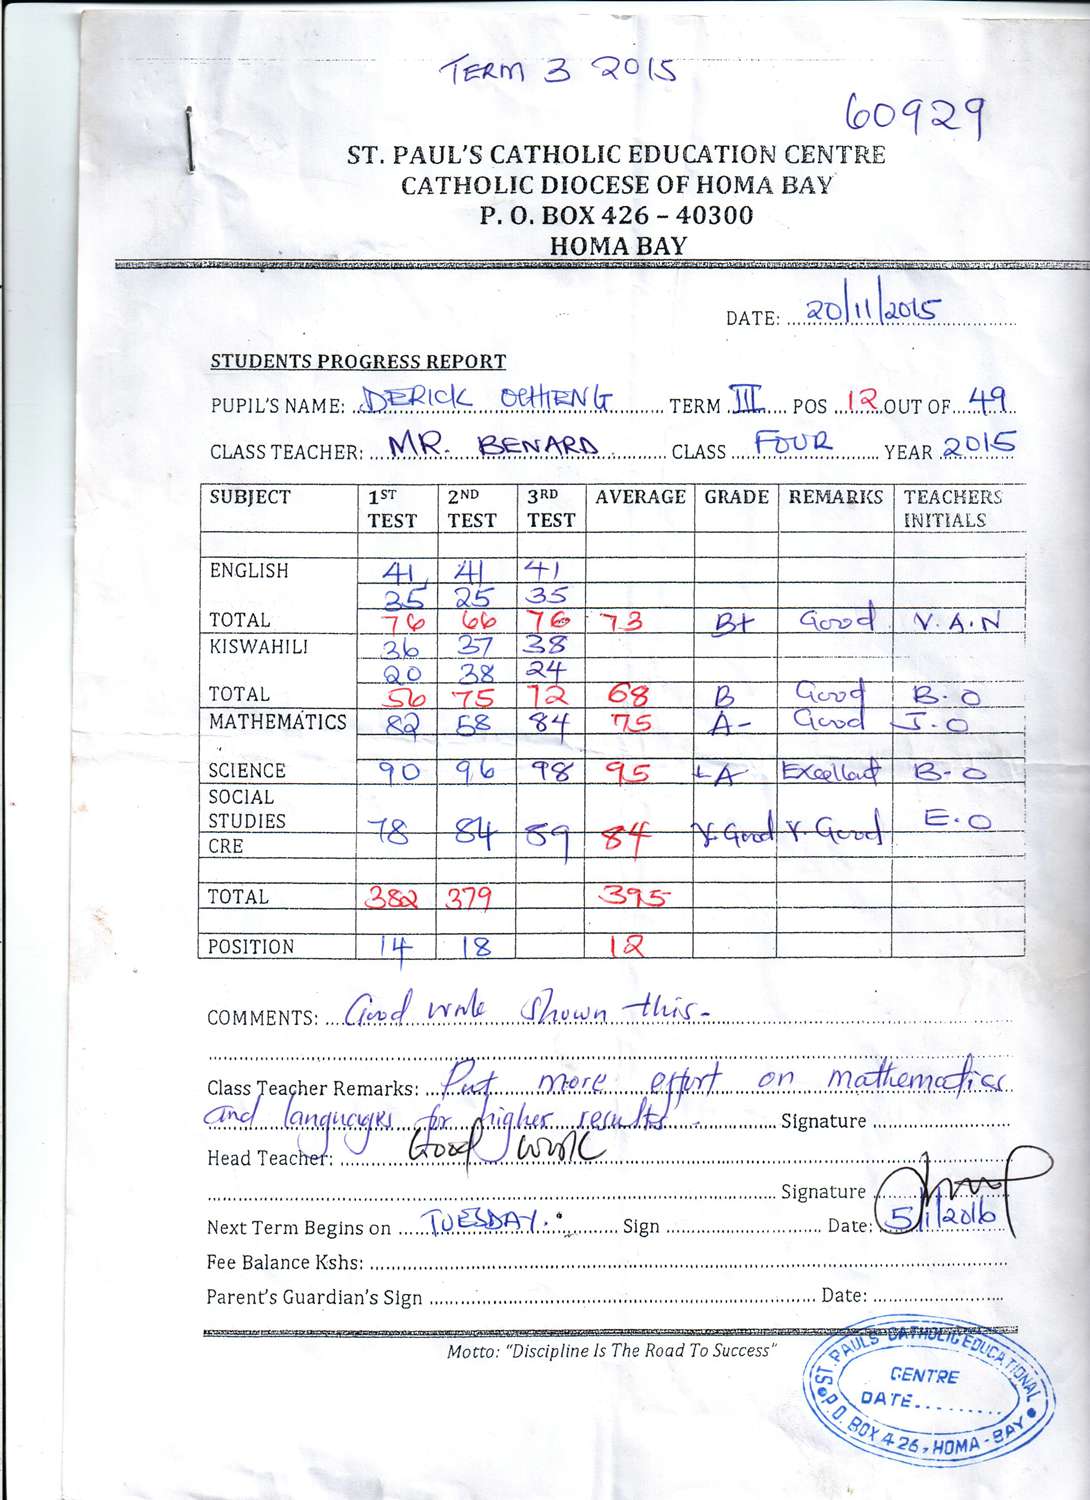 TERM 3 2015
60929
ST. PAUL'S CATHOLIC EDUCATION CENTRE
CATHOLIC DIOCESE OF HOMA BAY
P. O. BOX 426 – 40300
HOMA BAY
DATE: 20/11/2015
STUDENTS PROGRESS REPORT
PUPIL'S NAME: DERICK OCHIENG TERM III POS 12 OUT OF 49
CLASS TEACHER: MR. BENARD CLASS FOUR YEAR 2015
SUBJECT 1ST TEST 2ND TEST 3RD TEST AVERAGE GRADE REMARKS TEACHERS INITIALS
ENGLISH 41 41 41
35 25 35
TOTAL 76 66 76 73 B+ Good V.A.N
KISWAHILI 36 37 38
20 38 24
TOTAL 56 75 72 68 B Good B.O
MATHEMATICS 82 58 84 75 A- Good J.O
SCIENCE 90 96 98 95 A Excellent B.O
SOCIAL
STUDIES 78 84 89 84 V. Good V. Good E.O
CRE
TOTAL 382 379 395
POSITION 14 18 12
COMMENTS: Good work shown this-
Class Teacher Remarks: Put more effort on mathematics
and languages for higher results. Signature
Head Teacher: Good work
Signature
Next Term Begins on TUESDAY. Sign Date: 5/1/2016
Fee Balance Kshs:
Parent's Guardian's Sign Date:
Motto: "Discipline Is The Road To Success"
ST. PAULS CATHOLIC EDUCATIONAL
CENTRE
DATE
P.O. BOX 426, HOMA-BAY